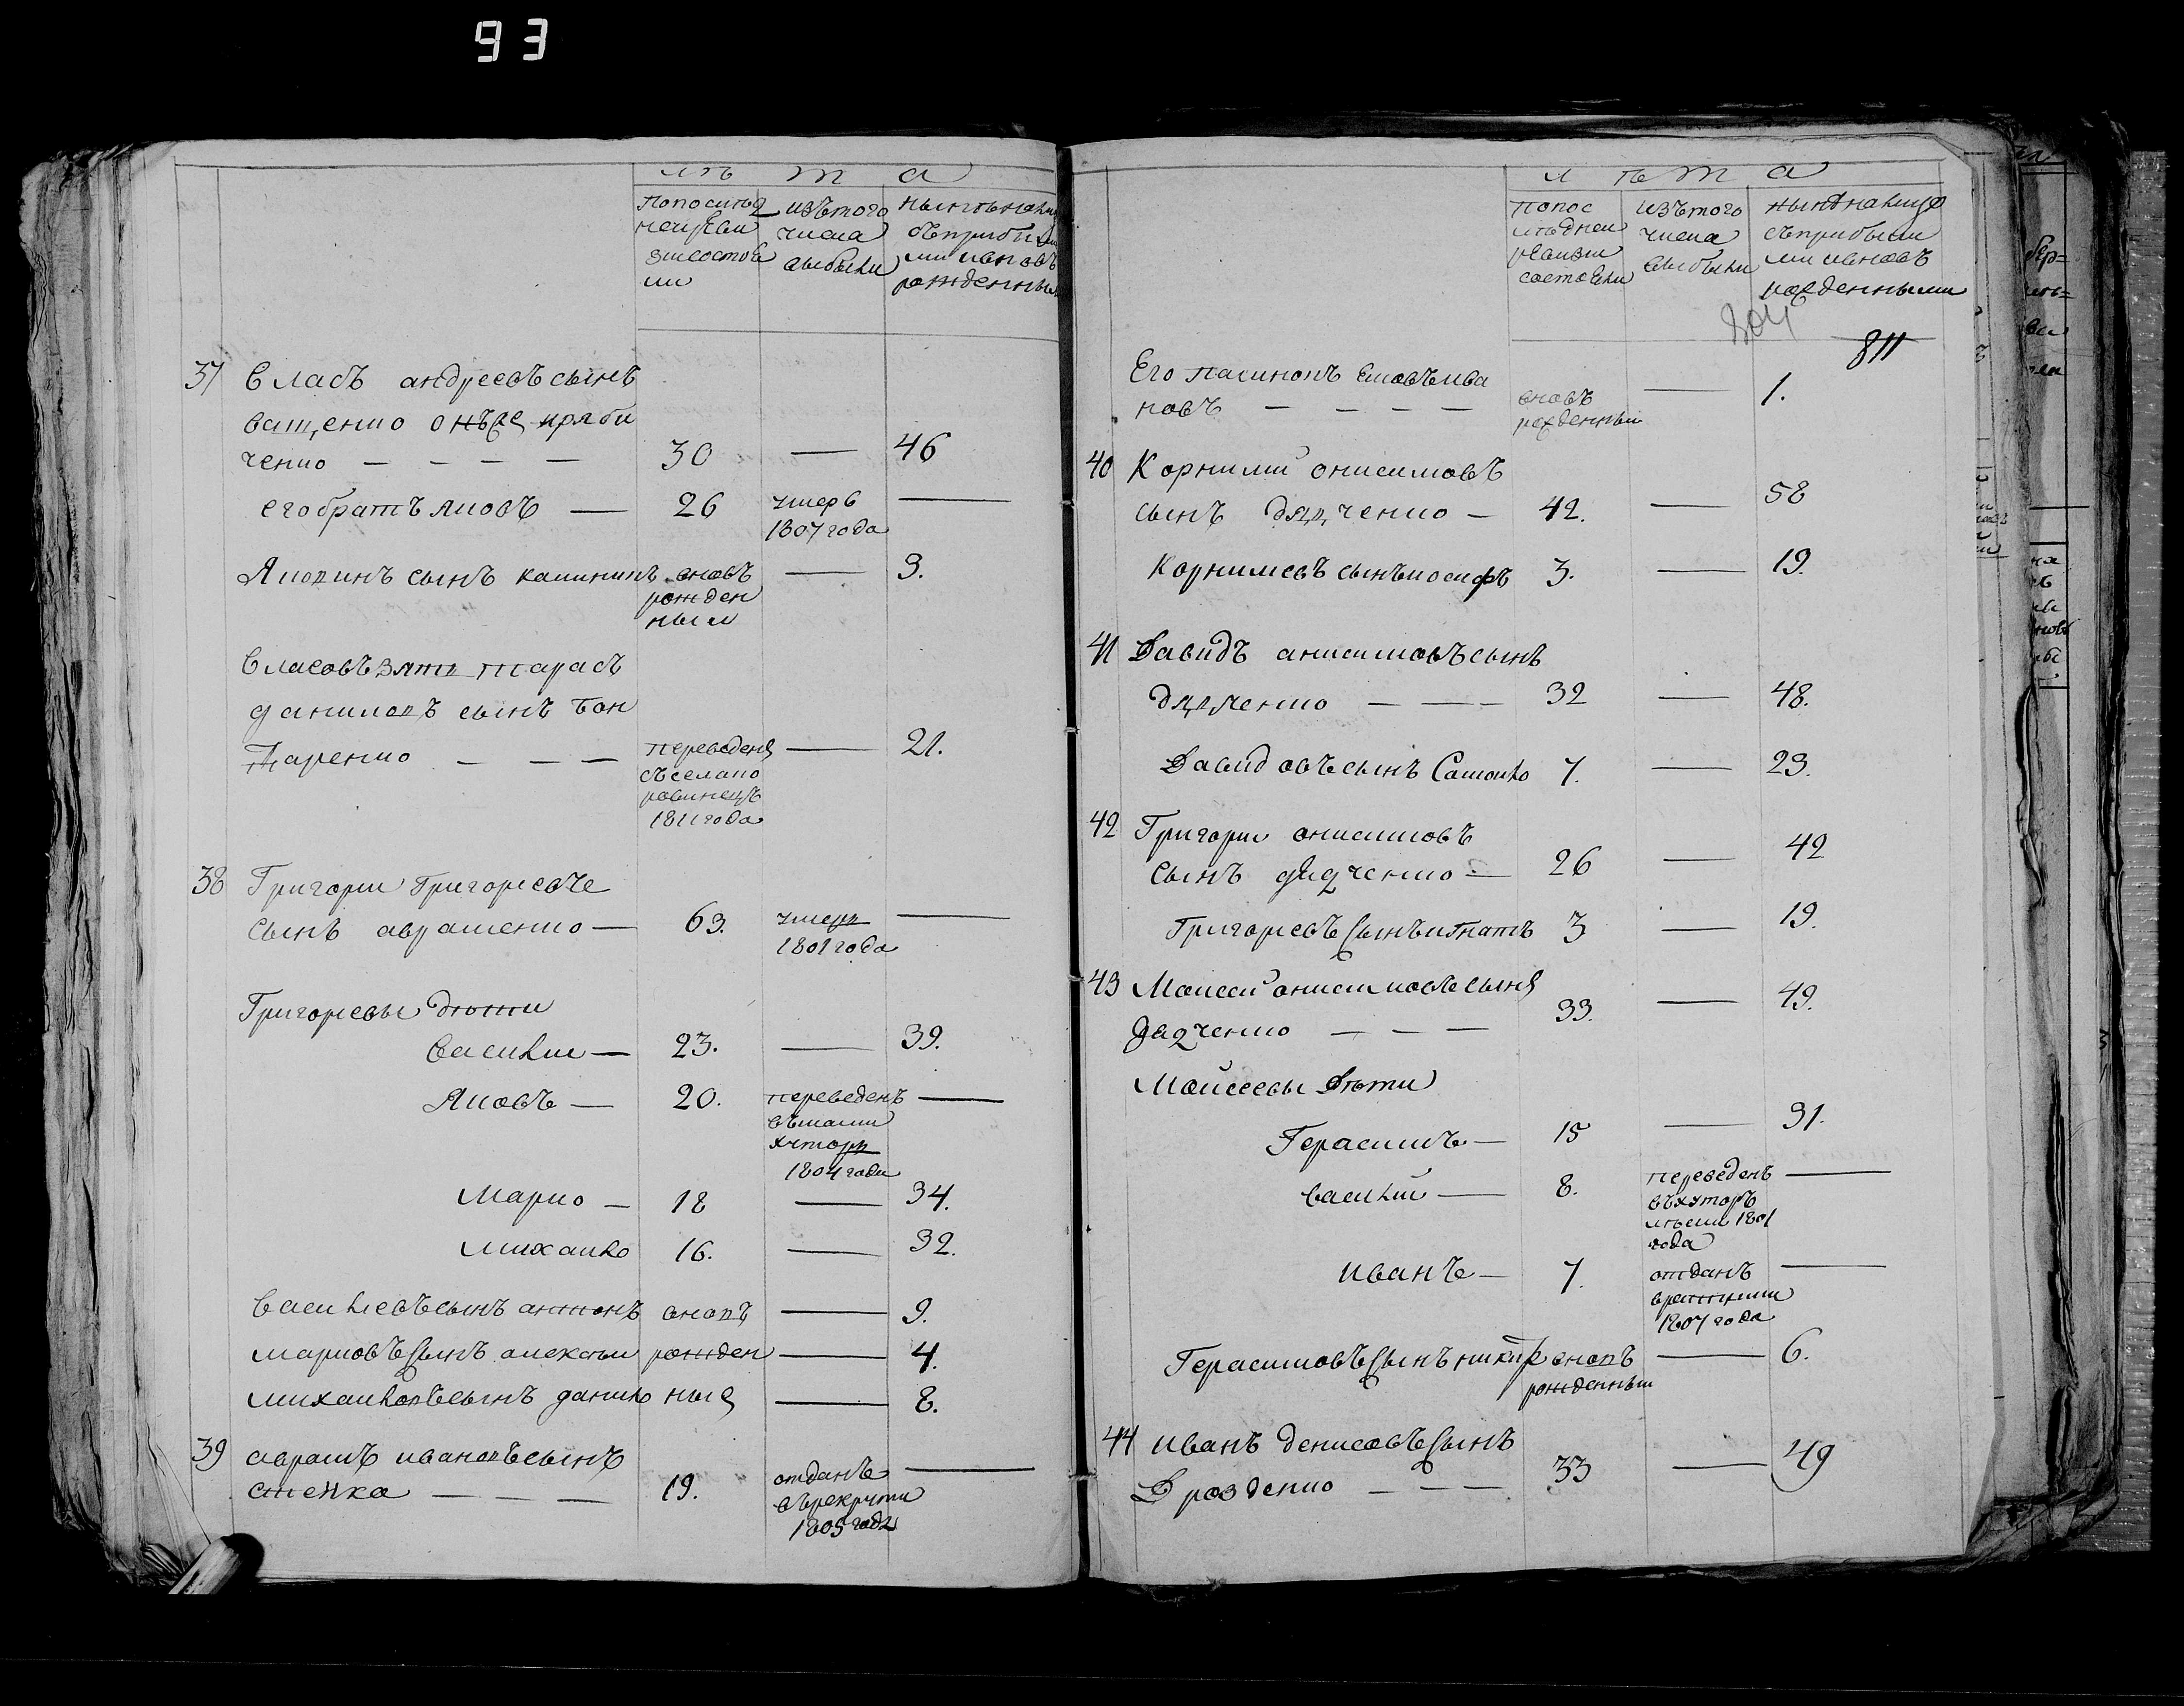 93
лѣ та
По последнеи ревизии состояли
изъ того числа выбыли
ныне на лицо съ прибылыми и вновь рожденными
37 Власъ андреевъ сынъ
Ващенко онъ же кряби
ченко — — — — 30 — 46
его братъ яковъ — 26 умерь 1807 года —
Яковлевъ сынъ калиникъ вновь рожденныи — 9.
Власовъ зять тарасъ
даниловъ сынъ бон
даренко — — — переведенъ съ села по ровинецъ 1811 года — 21.
38 Григории Григориевъ
сынъ авраменко — 63. умеръ 1801 года —
Григориевы дѣти
Василии — 23. — 39.
Яковъ — 20. переведенъ въ хуторъ 1804 года —
Марко — 18 — 34.
Михаило 16. — 32.
Васильевъ сынъ антонъ вновь — 9.
марковъ сынъ алексеи рожден — 4.
михаиловъ сынъ данило ные — 8.
39 аврамъ ивановъ сынъ
стенка — — — 19. отданъ въ рекруты 1805 года —
л ѣ т а
По последнеи ревизии состояли
изъ того числа выбыли
ныне на лицо съ прибылыми и вновь рожденными
804
811
Его пасинокъ Емовъ ива
новъ — — — — вновь рожденныи — 1.
40 Корнилий онисимовъ
сынъ дядченко — 42. — 58
Корнилиевъ сынъ иосифъ 3. — 19.
41 Давидъ анисимовъ сынъ
дядченко — — — 32 — 48.
Давидовъ сынъ Самоило 7. — 23.
42 Григории онисимовъ
сынъ дядченко — 26 — 42
Григориевъ сынъ игнатъ 3 — 19.
43 Моисей онисимовъ сынъ
Дядченко — — — 33. — 49.
Моисеевы дѣти
Герасимъ — 15 — 31.
василий — 8. переведенъ въ хуторъ 1801 года —
иванъ — 7. отданъ 1807 года —
Герасимовъ сынъ никиф вновь рожденныи — 6.
44 иванъ денисовъ сынъ
Дрозденко — — — 33 — 49